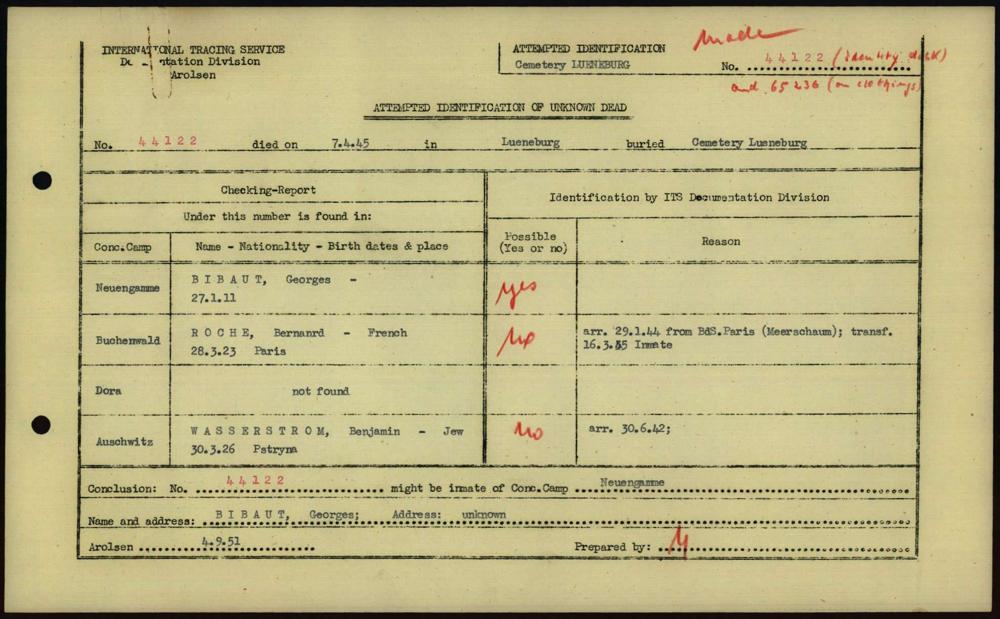 INTERNATIONAL TRACING SERVICE
Documentation Division
Arolsen
ATTEMPTED IDENTIFICATION
Cemetery LUENEBURG
made
No. 44122 (identity disk)
and 65236 (on clothings)
ATTEMPTED IDENTIFICATION OF UNKNOWN DEAD
No. 44122 died on 7.4.45 in Lueneburg buried Cemetery Lueneburg
Checking-Report
Under this number is found in:
Identification by ITS Documentation Division
Conc.Camp Name - Nationality - Birth dates & place Possible (Yes or no) Reason
Neuengamme BIBAUT, Georges - yes
27.1.11
Buchenwald ROCHE, Bernanrd - French No arr. 29.1.44 from BdS.Paris (Meerschaum); transf.
28.3.23 Paris 16.3.45 Inmate
Dora not found
Auschwitz WASSERSTROM, Benjamin - Jew No arr. 30.6.42;
30.3.26 Pstryna
Conclusion: No. 44122 might be inmate of Conc.Camp Neuengamme
Name and address: BIBAUT, Georges; Address: unknown
Arolsen 4.9.51 Prepared by: